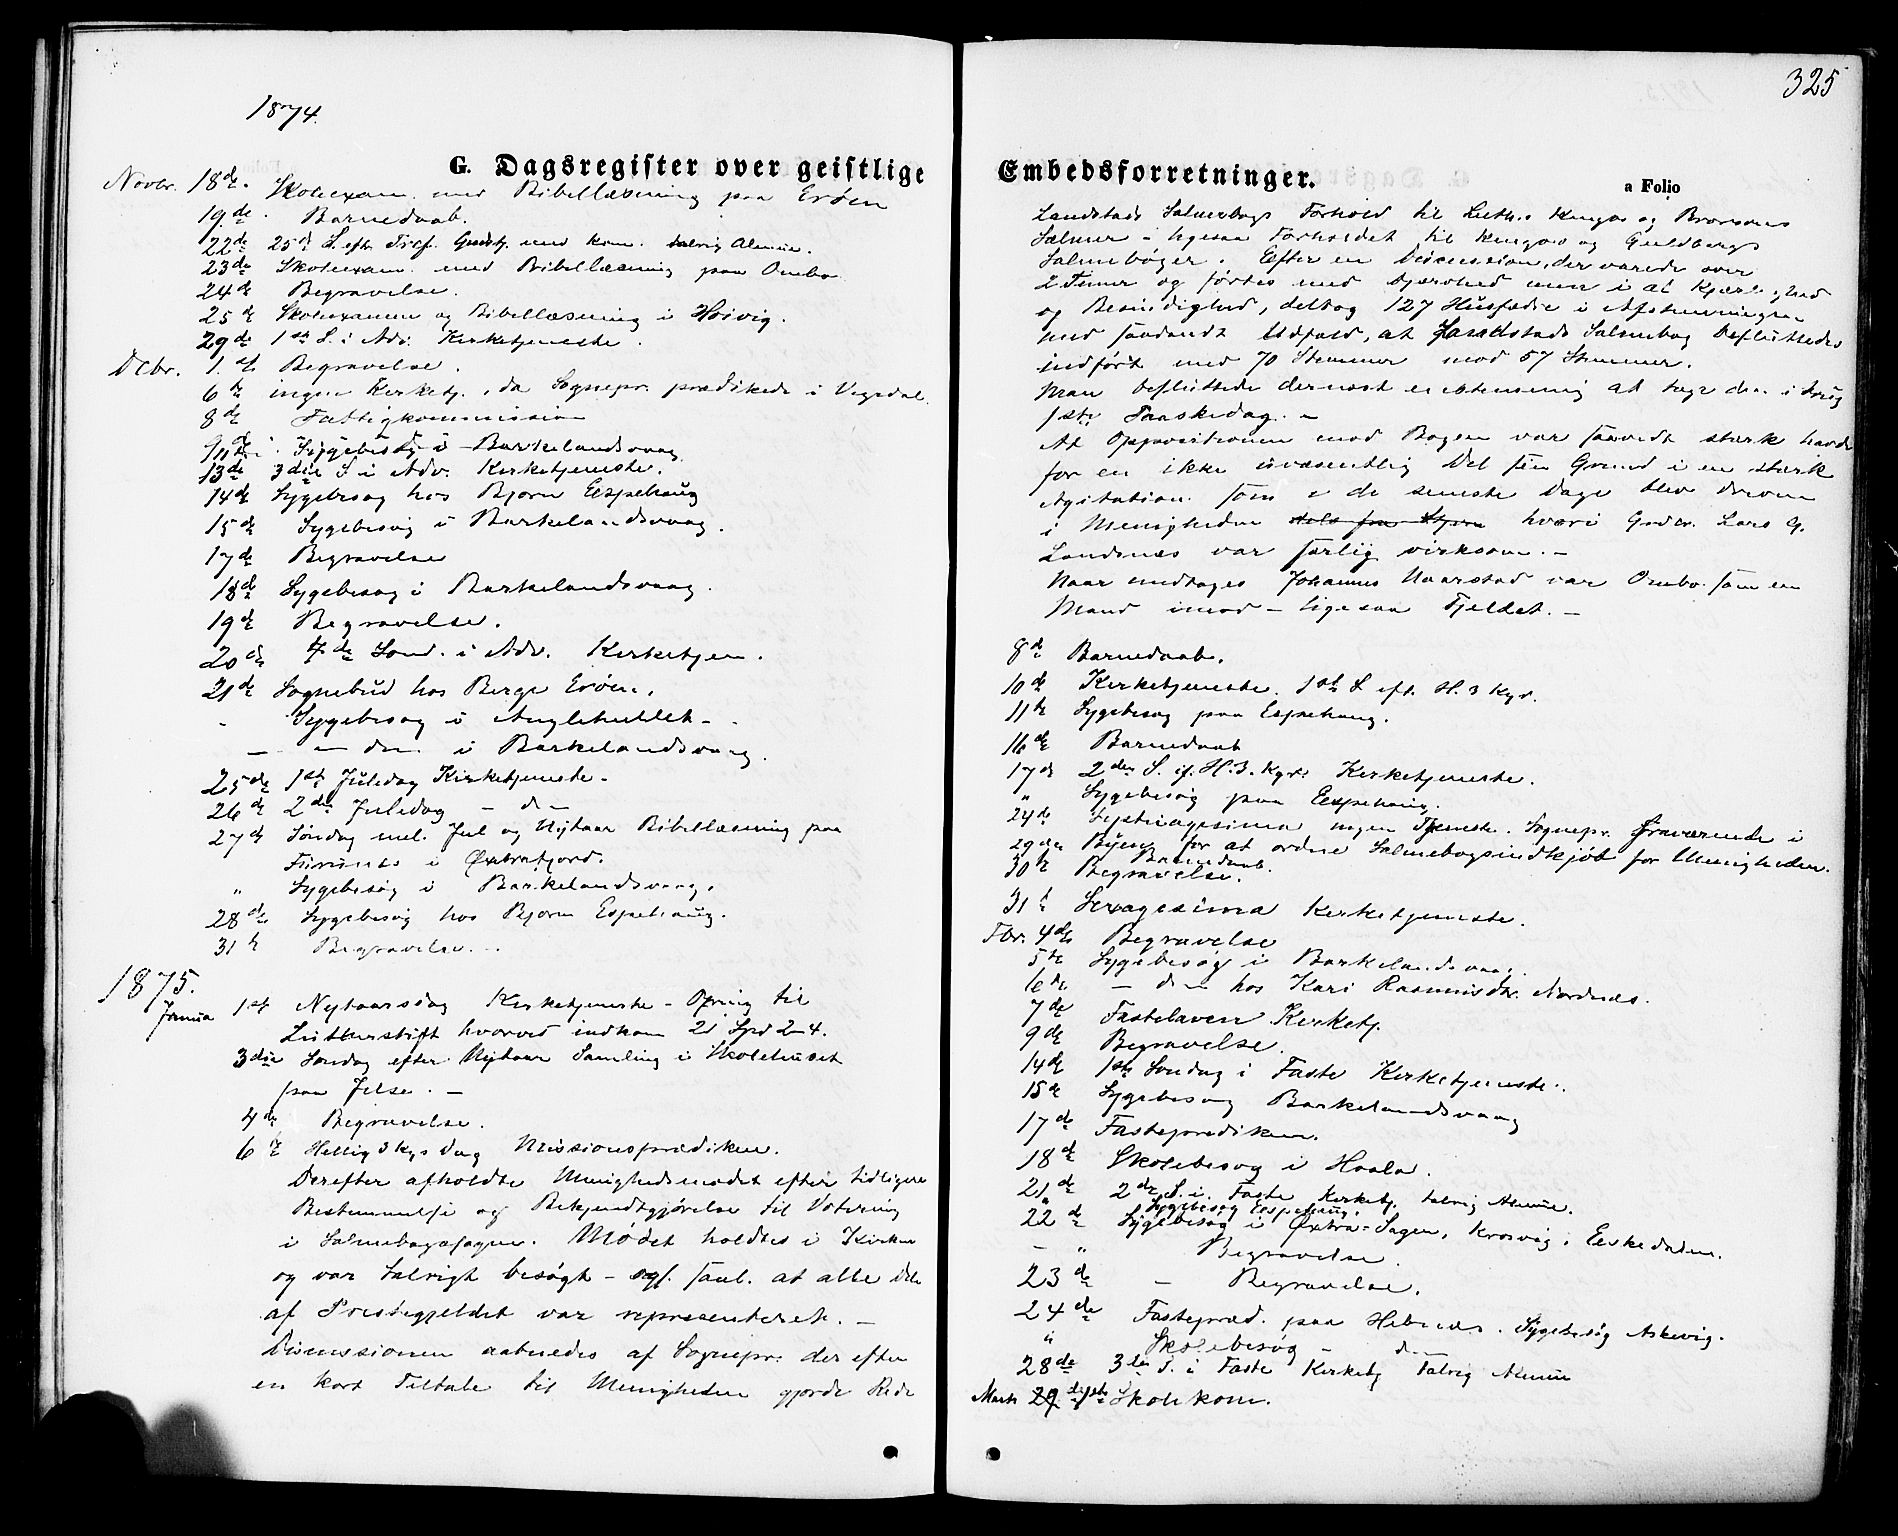 1874.
G. Dagsregister over geistlige
Novbr. 18de. Skoleexam. med Bibellæsning paa Erøen
19de. Barnedaab.
22de 25d S. eft. Tref. Gudstj. med kom. talrig Almue.
23de Skoleexam. med Bibellæsning paa Ombo
24de Begravelse.
25de Skoleexamen og Bibellæsning i Hovig.
29de 1ste S. i Adv. Kirketjeneste.
Dcbr. 1ste Begravelse.
6te ingen Kirketj., da Sognepr. prædikede i Vigedal.
8de Fattigkommission
Sygebesøg i Barkelandsvaag
13de 3die S i Adv. Kirketjeneste.
14de Sygebesøg hos Bjørn Espehaug
15de Sygebesøg i Barkelandsvaag.
17de Begravelse
18de Sygebesøg i Barkelandsvaag.
19de Begravelse.
20de 4de Sønd. i Adv. Kirketjen.
21de Sognebud hos Berge Erøen.
- Sygebesøg i
- - do - i Barkelandsvaag.
25de 1ste Juledag Kirketjeneste -
26de 2den Juledag - d -
27de Søndag mel. Jul og Nytaar Bibellæsning paa
i Øxtrafjord.
" Sygebesøg i Barkelandsvaag.
28de Sygebesøg hos Bjørn Espehaug.
31te Begravelse. -
1875.
Janua 1ste Nytaarsdag Kirketjeneste - Ofring til
Lutherstift hvorved indkom 21 Spd 2-4.
3die Søndag efter Nytaar Samling i Skolehuset
paa Jelse. -
4de Begravelse.
6te Hellig 3 Kgs Dag Missionsprædiken.
Derefter afholdte Menighedsmødet efter tidligere
Bestemmelse og Bekjendtgjørelse til Votering
i Salmebogssagen. Mødet holdtes i Kirken
og var talrigt besøgt - og saal. at alle Dele
af Præstegjeldet var repræsenteret. -
Discussionen aabnedes af Sognepr. der efter
en kort Tiltale til Menigheden gjorde Rede
325
Embedsforretninger.
a Folio
Landstads Salmebogs Forhold til Luthers Kingos og Brorsons
Salmer - ligesaa Forholdet til Kingos og Guldbergs
Salmebøger. Efter en Discussion, der varede over
2 Timer og førtes med Djærvhed men i al Kjærlighed
og Besindighed, deltog 127 Husfædre i Afstemningen
med saadant Udfald, at Landstads Salmebog besluttedes
indført med 70 Stemmer mod 57 Stemmer.
Man besluttede dernæst enstemmig at tage den i brug
1ste Paaskedag. -
At Oppositionen mod Bogen var saavidt stærk havde
for en ikke uvæsentlig Del sin Grund i en stærk
Agitation som i de seneste Dage blev dreven
i Menigheden hvori Gaardbr. Lars G.
Landsnæs var særlig virksom. -
Naar undtages Johannes Naarstad var Ombo som en
Mand imod - ligesaa Fjeldet. -
8de Barnedaab.
10de Kirketjeneste. 1ste S. eft. H. 3 Kgr.
11te Sygebesøg paa Espehaug.
16de Barnedaab
17de 2den S. ef. H. 3. Kgr. Kirketjeneste.
" Sygebesøg paa Espehaug.
24de Septuagesima ingen Tjeneste. Sognepr. fraværende i
29de Byen for at ordne Salmebogsindkjøb for Menigheden.
Barnedaab.
30te Begravelse.
31te Sexagesima Kirketjeneste.
Fbr. 4de Begravelse
5te Sygebesøg i Barkelandsvaag.
6te - d - hos Kari Rasmusdtr. Nordnæs.
7de Fastelaven Kirketj.
9de Begravelse.
14de 1ste Søndag i Faste Kirketjeneste.
15de Sygebesøg Barkelandsvaag
17de Fasteprædiken.
18de Skolebesøg i Haala.
21de 2den S. i. Faste Kirketj. talrig Almue.
" Sygebesøg Espehaug.
22de Sygebesøg i Øxtra-Sagen, Krosvig, Eeskedalen.
- " Begravelse.
23de - Begravelse.
24de Fastepræd. paa Hebnæs. Sygebesøg Askevig.
" Skolebesøg - d -
28de 3die S. i Faste Kirketj Talrig Almue
Marts 1ste Skolekom.